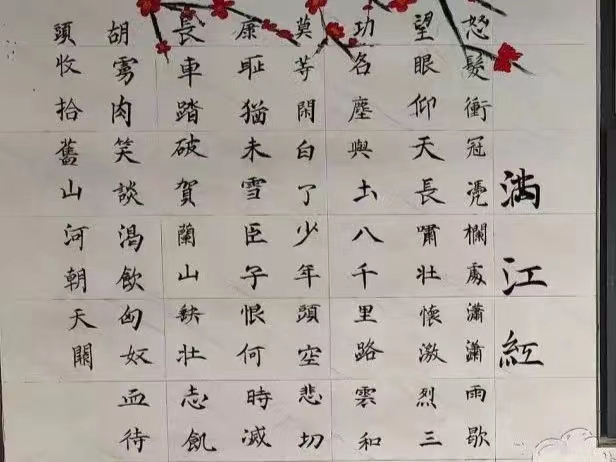 满江紅
怒髮衝冠凴欄處瀟瀟雨歇
望眼仰天長嘯壯懷激烈三
功名塵與土八千里路雲和
莫等閑白了少年頭空悲切
康耻猶未雪臣子恨何時滅
長車踏破賀蘭山缺壯志飢
胡虜肉笑談渴飲匈奴血待
頭收拾舊山河朝天闕